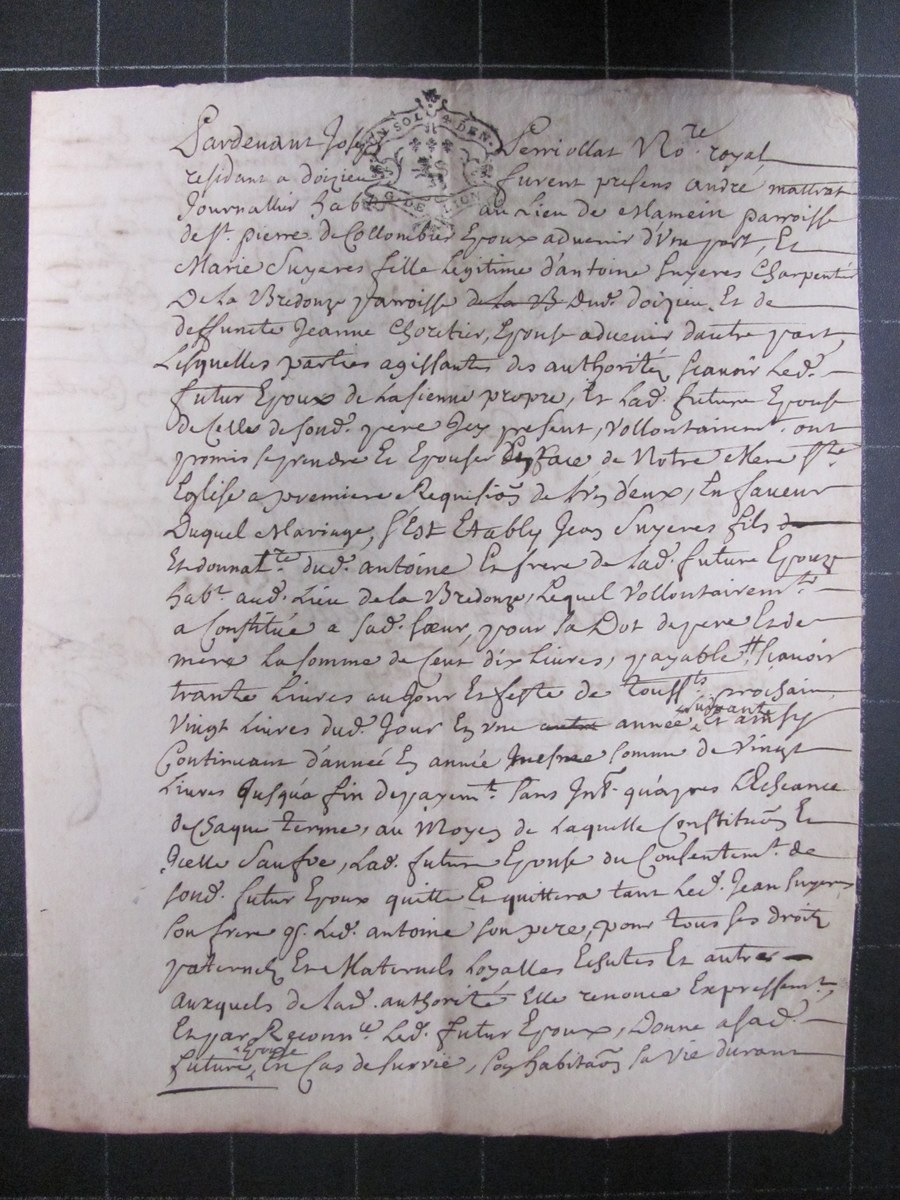 Pardevant Joseph Perriollat No.re royal
residant a doizieu furent presens andré mattrat
Journallier hab au Lieu de Mamein parroisse
de st. pierre de Collombier Epoux advenir d'Une part, Et
Marie Suyeres fille Legitime d'antoine Suyeres Charpentr
De La Bredouze parroisse de la B Dud. doizieu, Et de
deffuncte Jeanne Choretier, Epouse advenir dautre part
Lesquelles parties agissantes des authoritéz scavoir Led.
futur Epoux de La sienne propre, Et Lad. future Epouse
de Celle de sond. pere Icy present, Vollontairemt. ont
promis se prendre Et Epouser En face de Notre Mere Ste
Eglise a premiere Requision de L'un d'eux, En faveur
Duquel Mariage, s'Est Etably Jean Suyeres fils
Et donnat.re dud. antoine Et frere de Lad. future Epouze
habt. aud. Lieu de la Bredouze, Lequel Vollontairemt.
a Constitué a sad. sœur, pour sa Dot de pere Et de
mere La somme de Cent dix Livres, payable scavoir
trante Livres au Jour Et feste de Toussts. prochain
Vingt Livres dud. Jour En Une autre année suivante, Et ainsy
Continuant d'anneé En année mesme somme de Vingt
Livres Jusqua fin de payemt. sans Intt. qu'apres L'Escheance
de Chaque terme, au Moyen de Laquelle Constituõn Et
Icelle Saufve, Lad. future Epouse du Consentemt. de
sond. futur Epoux quitte Et quittera tant Led. Jean Suyeres
son frere q. Led. antoine son pere, pour tous ses droits
paternels Et Maternels Loyalles Echutes Et autres
auxquels de Lad. authorité Elle renonce Expressemt.
Et par Reconnce. Led. futur Epoux, Donne a sad.
future Epouse, En Cas de survie, son habitaõn sa Vie durant